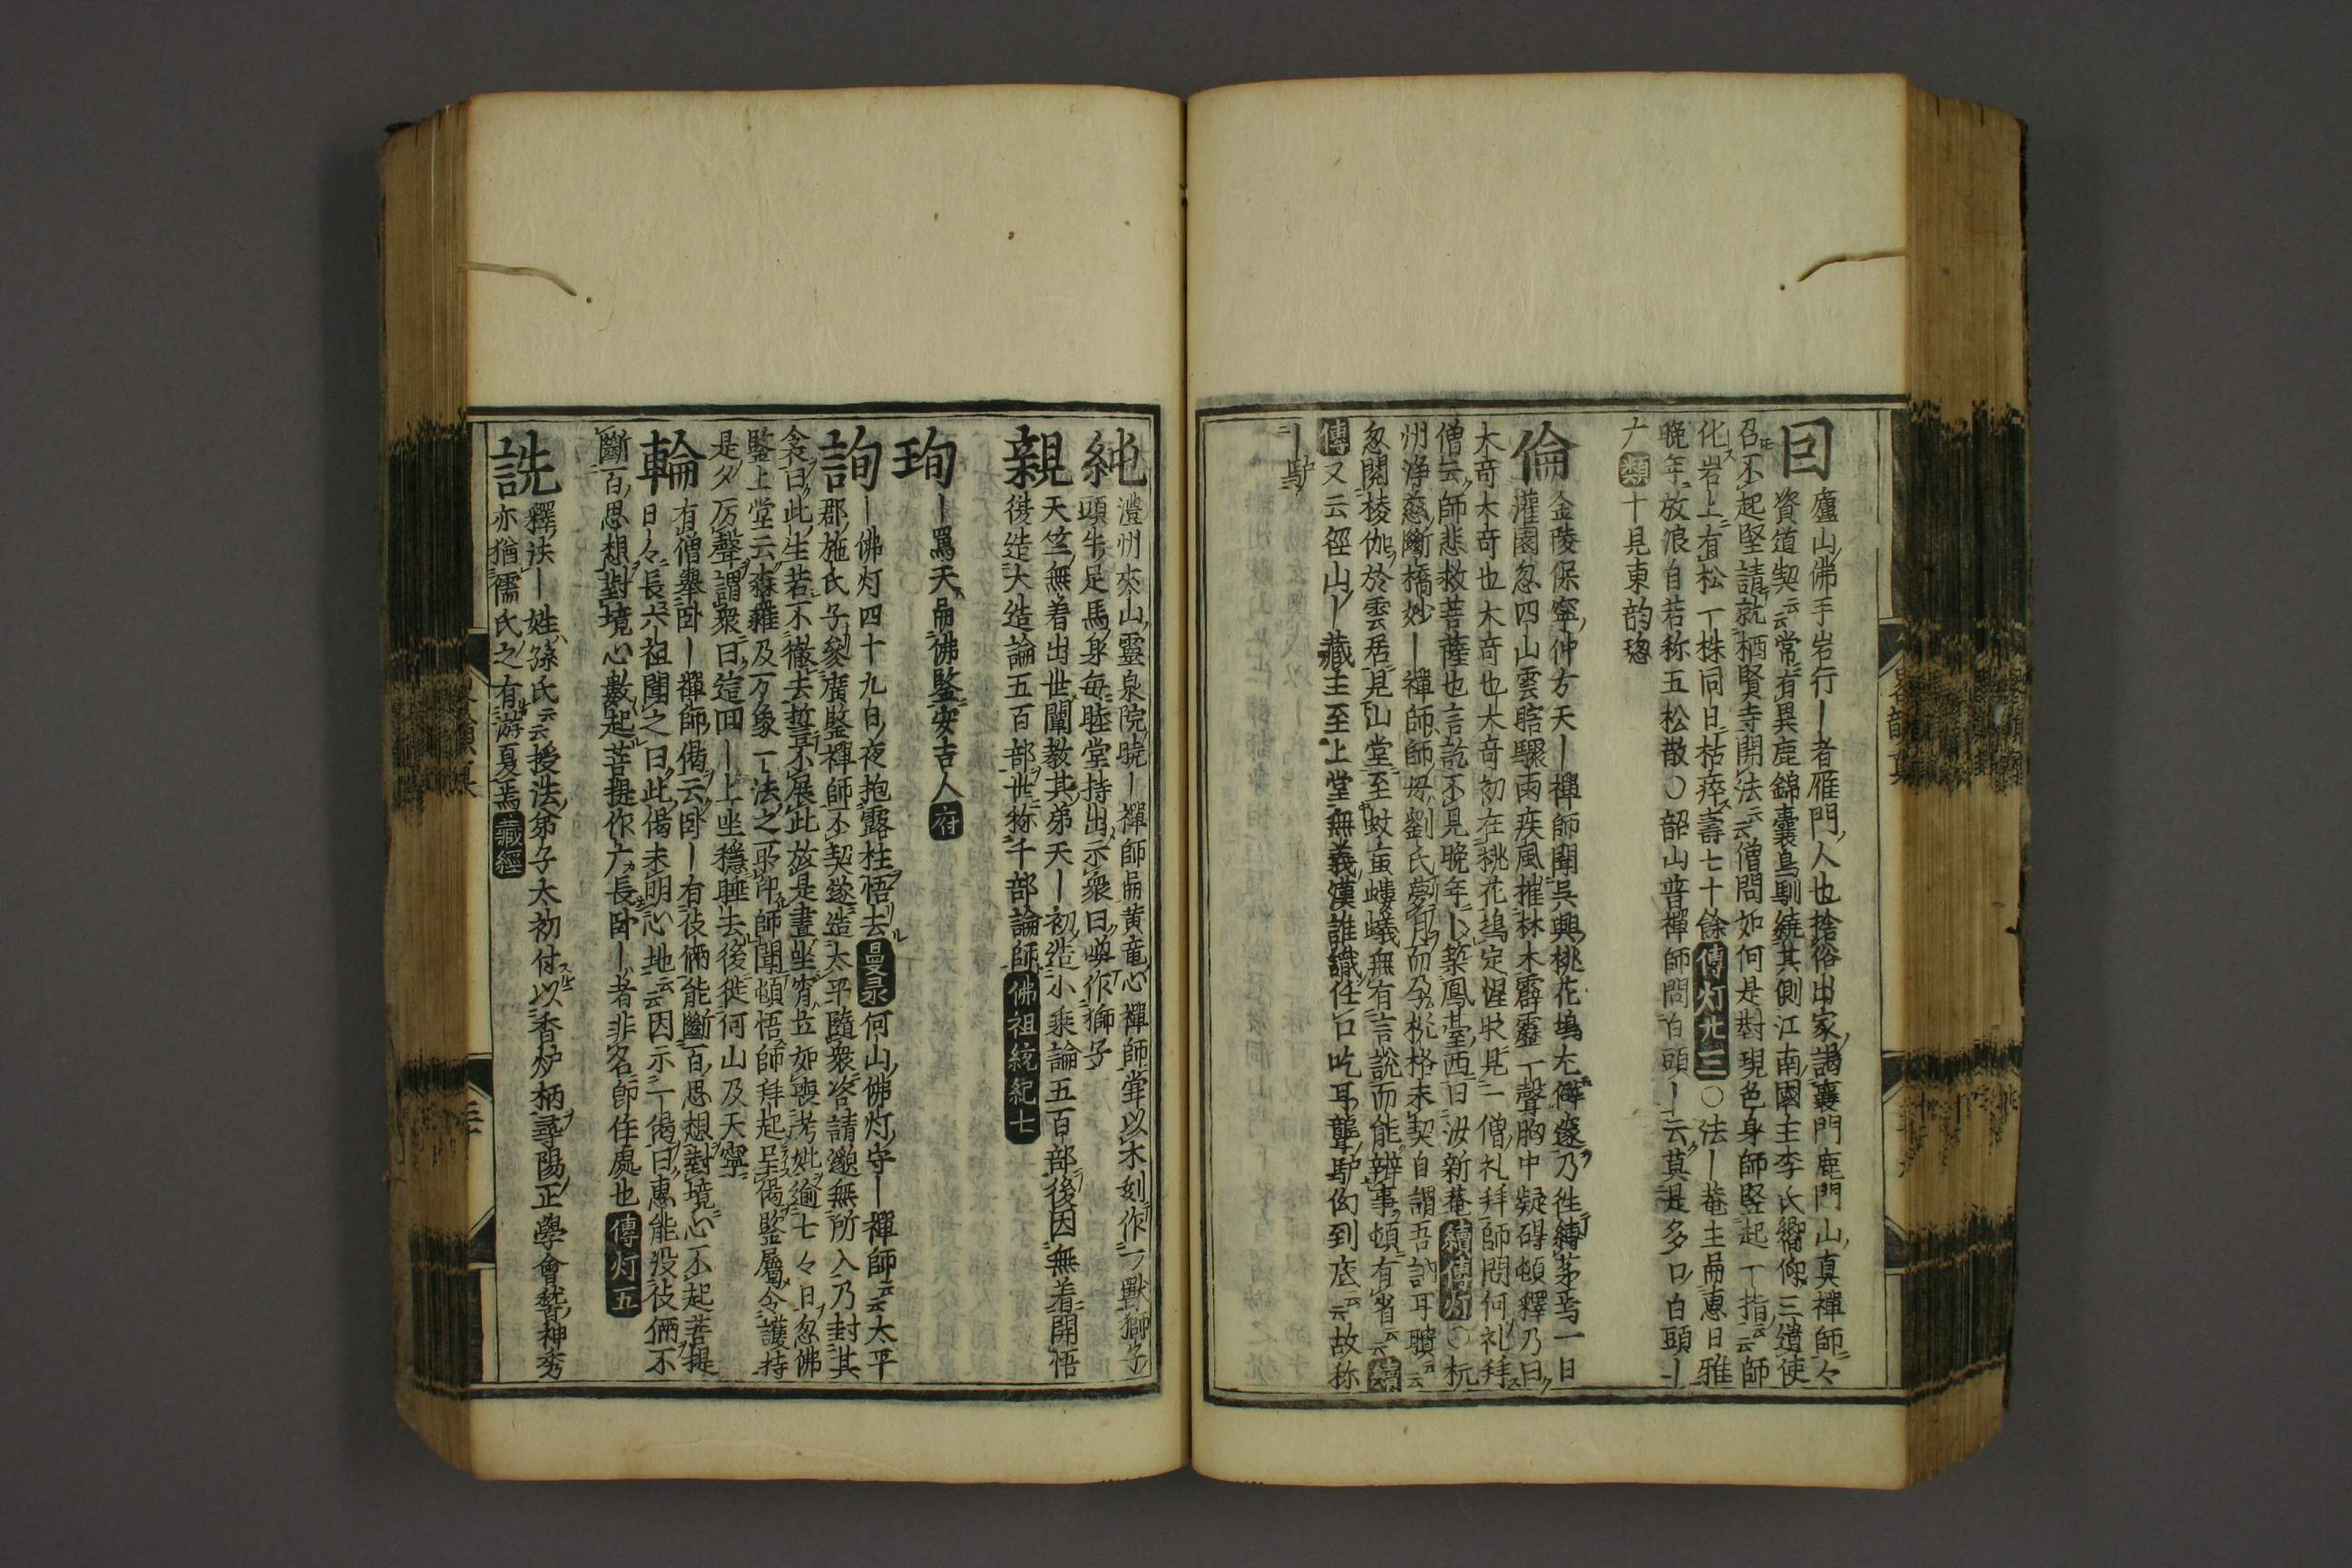 因
廬山佛手岩行｜者雁門人也捨俗出家謁襄門鹿門山真禪師々
資道契云云常有異鹿錦囊鳥馴繞其側江南國主李氏嚮你三遣使
召不起堅請就栖賢寺開法云云僧問如何是對現色身師竪起一指云云師
化岩上有松一株同日枯瘁壽七十餘傳灯廿三○法｜菴主嗣惠日雅
晚年放浪自若称五松散○韶山普禪師問白頭｜云莫是多口白頭｜
广類十見東韵璁
倫
金陵保寧仲方天｜禪師聞吳興桃花塢左僻遂乃徃縛茅焉一日
灌園忽四山雲暗驟雨疾風摧林木霹靂一聲胸中疑碍頓釋乃曰
大奇大奇也大奇也大奇初在桃花塢定惺欤見一僧礼拜師問何礼拜
僧云師悲救菩薩也言訖不見晚年卜築鳳臺西曰汝新菴續傳灯○杭
州淨慈斷橋妙｜禪師師母劉氏夢月而孕枕格未契自謂吾訥耳聵云云
忽閱棱伽於雲居見山堂至蚊䖟螻蟻無有言說而能辨事頓有省云云續
傳又云徑山｜藏主至上堂無義漢誰識任口吃耳聾馿㑃到底云云故称
｜馿
純
澧州夾山靈泉院曉｜禪師嗣黄竜心禪師甞以木刻作一獸獅子
頭牛足馬身每陞堂持出示衆曰喚作獅子
親
天竺無着出世闡教其弟天｜初造小乘論五百部後因無着開悟
復造大造論五百部世称千部論師佛祖統紀七
珣
｜罵天嗣佛鑒安吉人府
詢
｜佛灯四十九日夜抱露柱悟去曼录何山佛灯守｜禪師云云太平
郡施氏子參廣鑒禪師不契遂造太平隨衆咨請邈無所入乃封其
衾曰此生若不徹去誓不展此於是晝坐宵立如喪考妣逾七々日忽佛
鑒上堂云森羅及万象一法之所印師聞頓悟師拜起呈偈鑒屬令護持
是夕厉聲謂衆曰這囬｜上坐穩睡去後徙何山及天寧
輪
有僧舉卧｜禪師偈云卧｜有伎倆能斷百思想對境心不起菩提
日々長六祖聞之曰此偈未明心地云云因示一偈曰惠能没伎倆不
斷百思想對境心數起菩提作广長卧｜者非名即住處也傳灯五
詵
釋法｜姓孫氏云云授法弟子太初付以香炉柄尋陽正學會稽神秀
亦猶儒氏之有游夏焉藏經